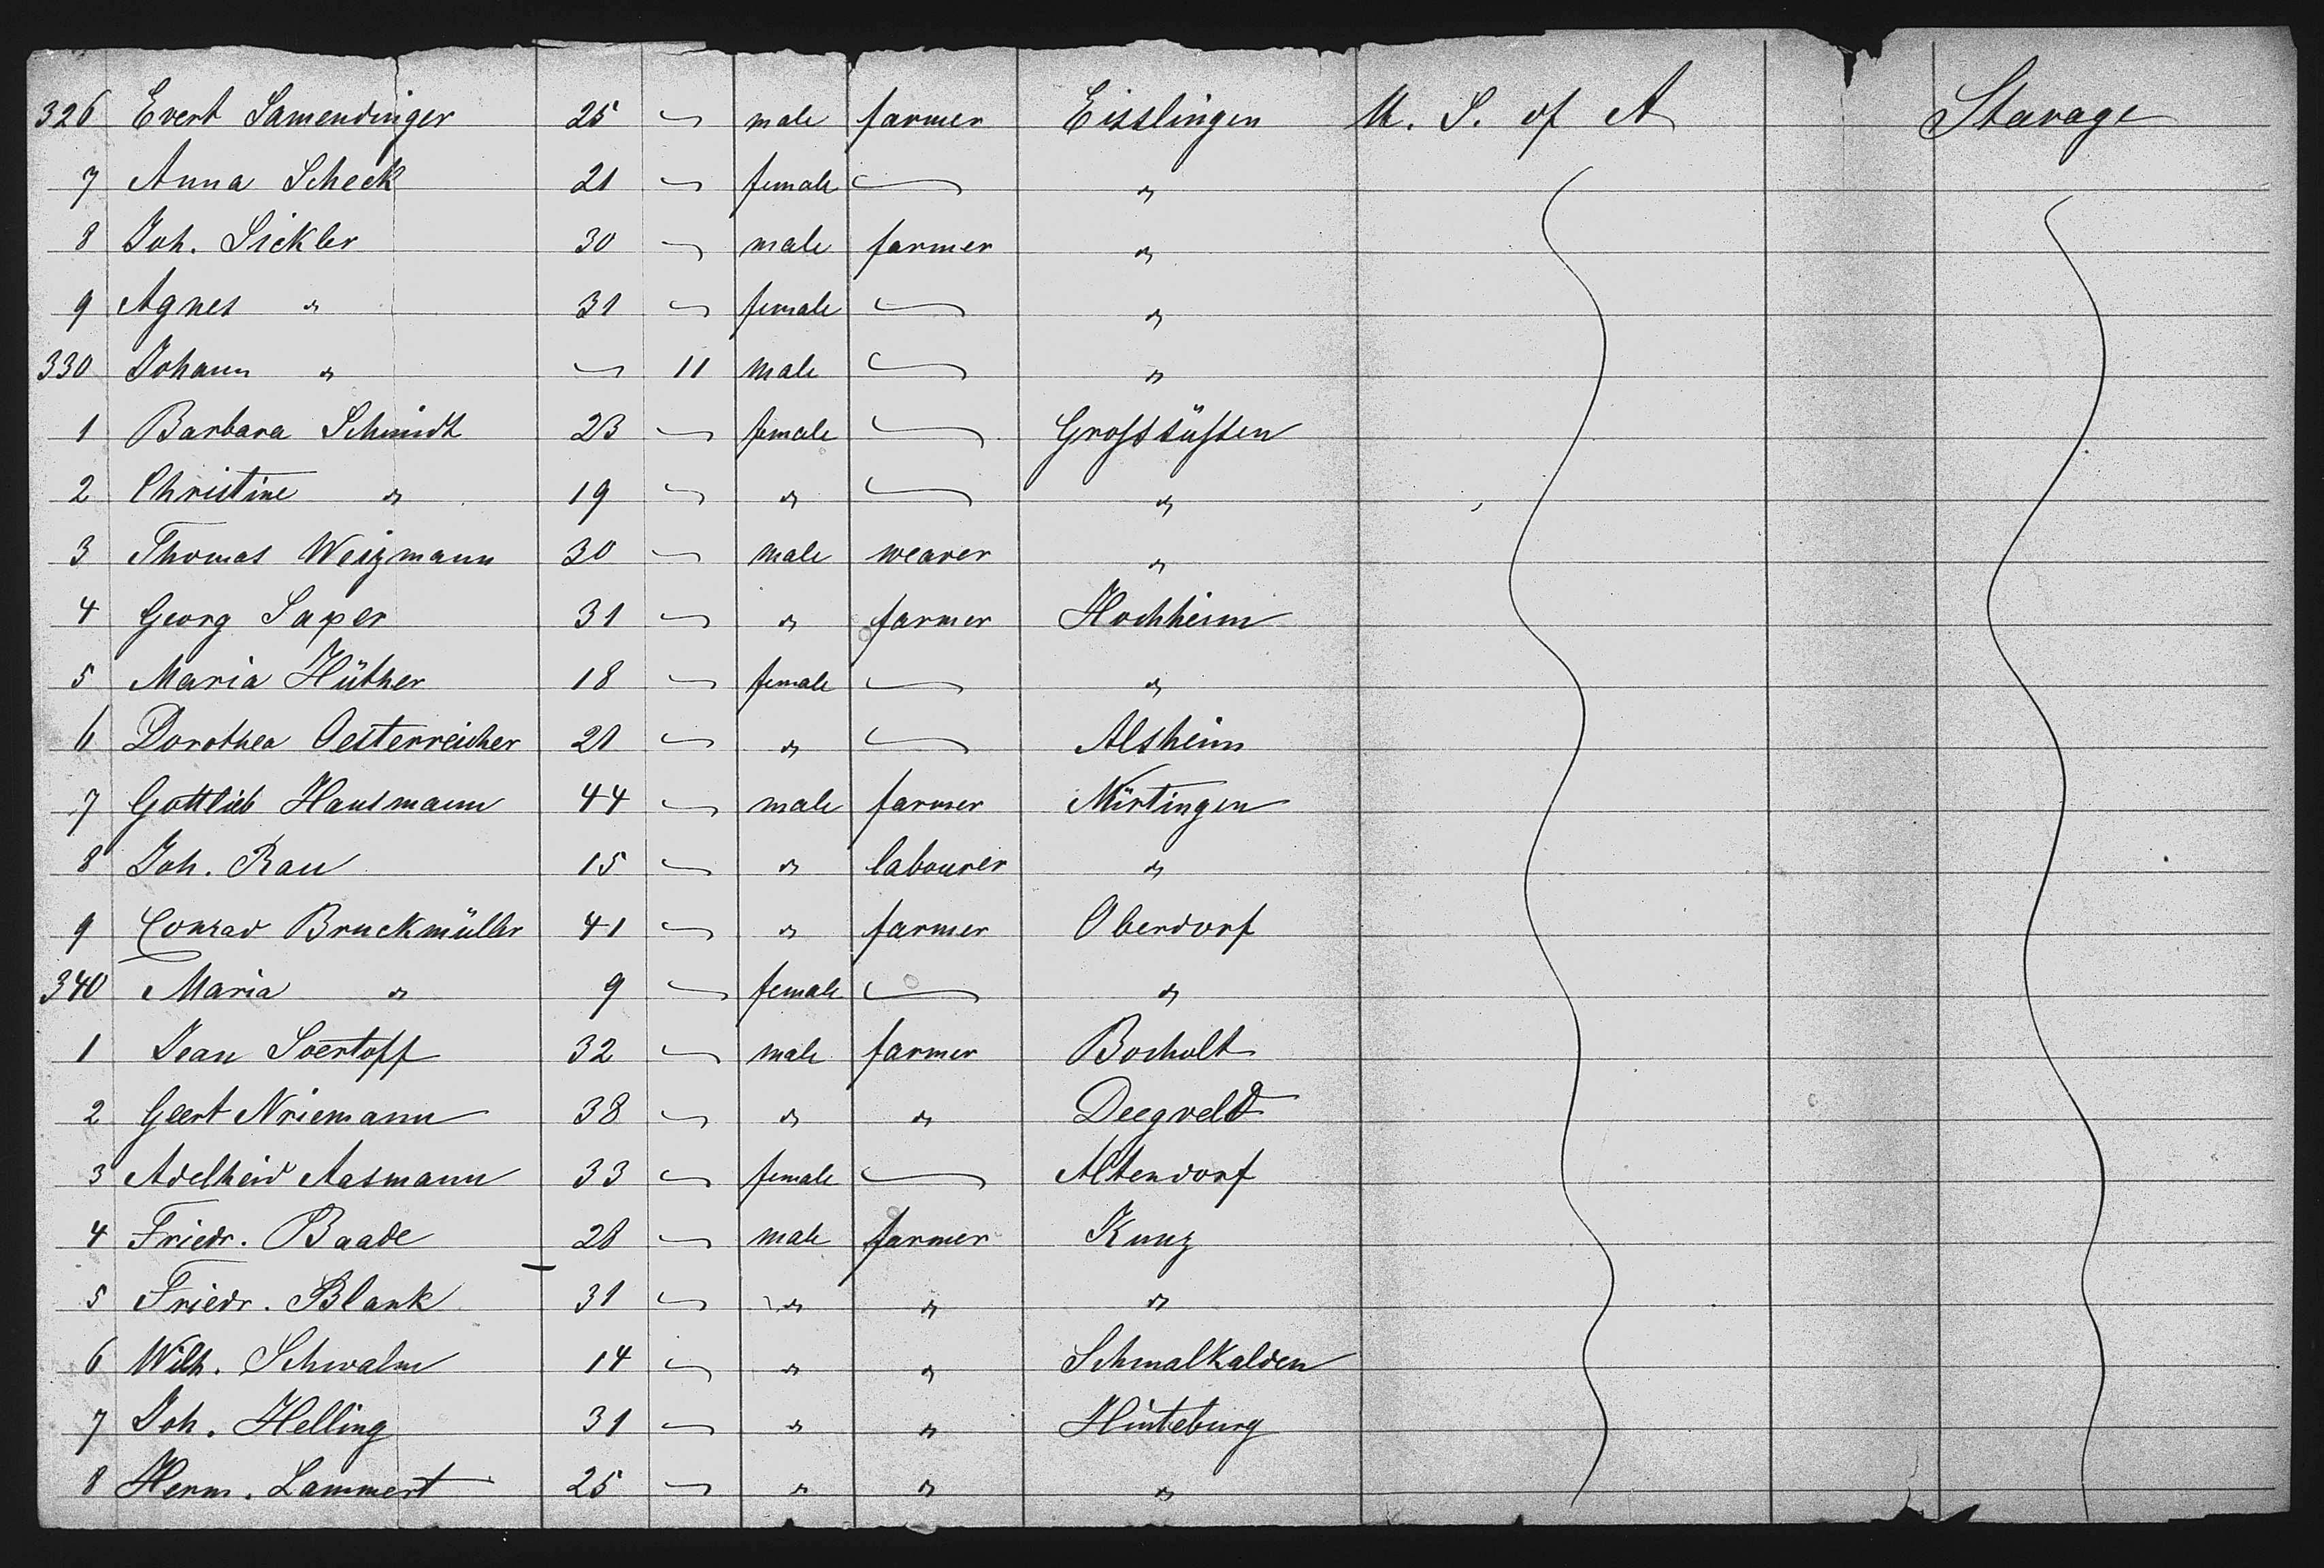 326 Evert Samendinger 25 male farmer Eisslingen U. S. of A Starage
7 Anna Scheck 21 female "
8 Joh. Sickler 30 male farmer "
9 Agnes " 31 female "
330 Johann " 11 male "
1 Barbara Schmidt 23 female Grossüssen
2 Christine " 19 " "
3 Thomas Weizmann 30 male weaver "
4 Georg Saper 31 " farmer Hochheim
5 Maria Hüther 18 female "
6 Dorothea Oesterreicher 21 " Alsheim
7 Gottlieb Hausmann 44 male farmer Nürtingen
8 Joh. Rau 15 " labourer "
9 Conrad Bruckmüller 41 " farmer Oberdorf
340 Maria " 9 female "
1 Jean Soertoff 32 male farmer Bocholt
2 Geert Nriemann 38 " " Deegveld
3 Adelheid Aasmann 33 female Altendorf
4 Friedr. Baade 28 male farmer Kunz
5 Friedr. Blank 31 " " "
6 Wilh. Schwalm 14 " " Schmalkalden
7 Joh. Helling 31 " " Hinteburg
8 Herm. Lammert 25 " " "